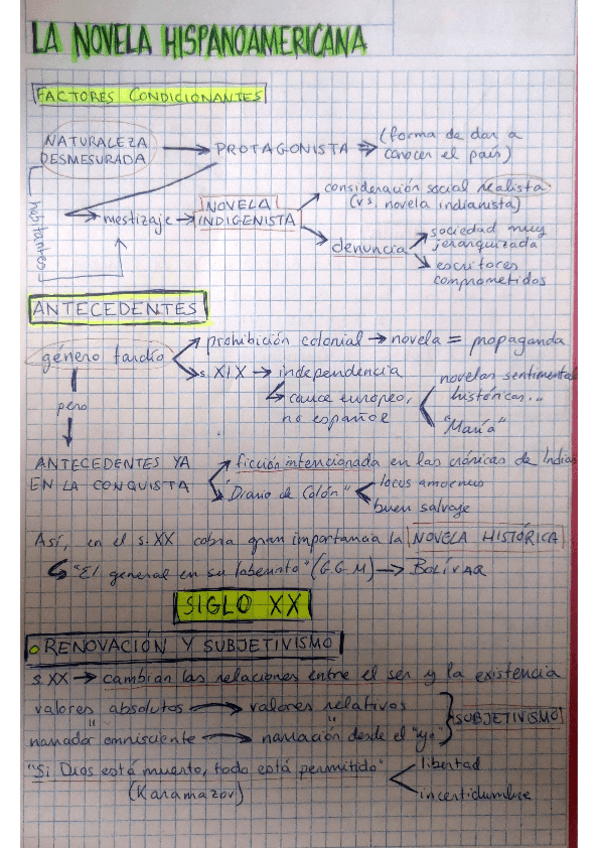 LA NOVELA HISPANOAMERICANA
FACTORES CONDICIONANTES
NATURALEZA DESMESURADA → PROTAGONISTA ⇒ (forma de dar a
conocer el país)
habitantes
→ mestizaje → NOVELA INDIGENISTA
consideración social realista
(vs. novela indianista)
denuncia
sociedad muy
jerarquizada
escritores
comprometidos
ANTECEDENTES
género tardío
prohibición colonial → novela = propaganda
s. XIX → independencia
cauce europeo,
no español
novelas sentimental
históricas...
"María"
pero
ANTECEDENTES YA
EN LA CONQUISTA
ficción intencionada en las crónicas de Indias
"Diario de Colón"
locus amoenus
buen salvaje
Así, en el s. XX cobra gran importancia la NOVELA HISTÓRICA
"El general en su laberinto" (G.G.M) → BOLÍVAR
SIGLO XX
• RENOVACIÓN Y SUBJETIVISMO
s XX → cambian las relaciones entre el ser y la existencia
valores absolutos → valores relativos
" "
narrador omnisciente → narración desde el "yo"
SUBJETIVISMO
"Si Dios está muerto, todo está permitido"
(Karamazov)
libertad
incertidumbre